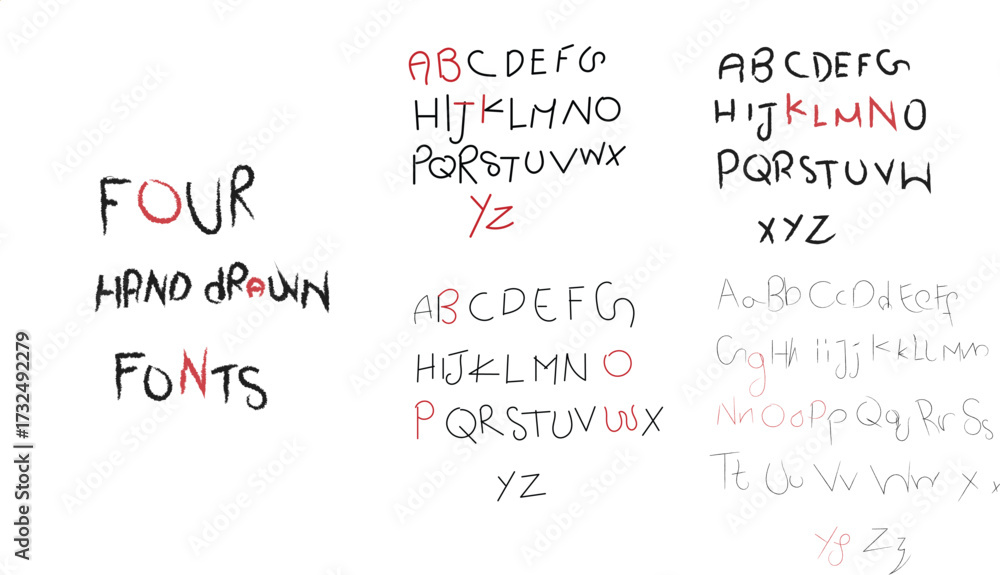 FOUR
HAND dRAWN
FONTS
ABCDEFG
HIJKLMNO
PQRSTUVWX
YZ
ABCDEFG
HIJKLMNO
PQRSTUVW
XYZ
ABCDEFG
HIJKLMNO
PQRSTUVWX
YZ
AaBbCcDdEeFf
GgHhIiJjKkLlMm
NnOoPpQqRrSs
TtUuVvWwXx
YyZz
Adobe Stock | #1732492279
Adobe Stock